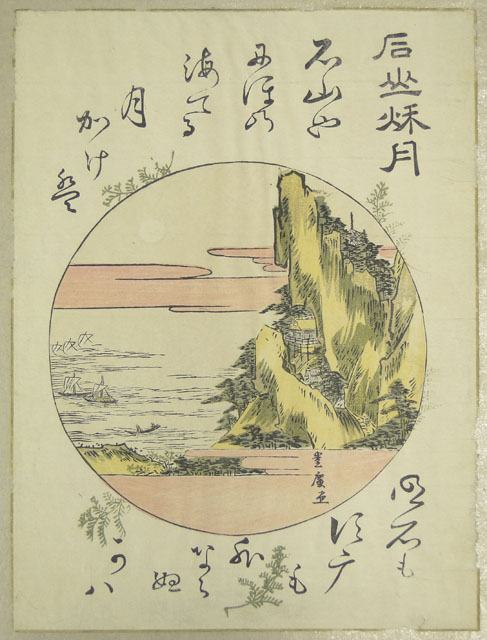 石山秌月
石山や
にほの
海てる
月
かけ
盤
明石も
須广
も
外
なら
ぬ
かハ
豊廣画